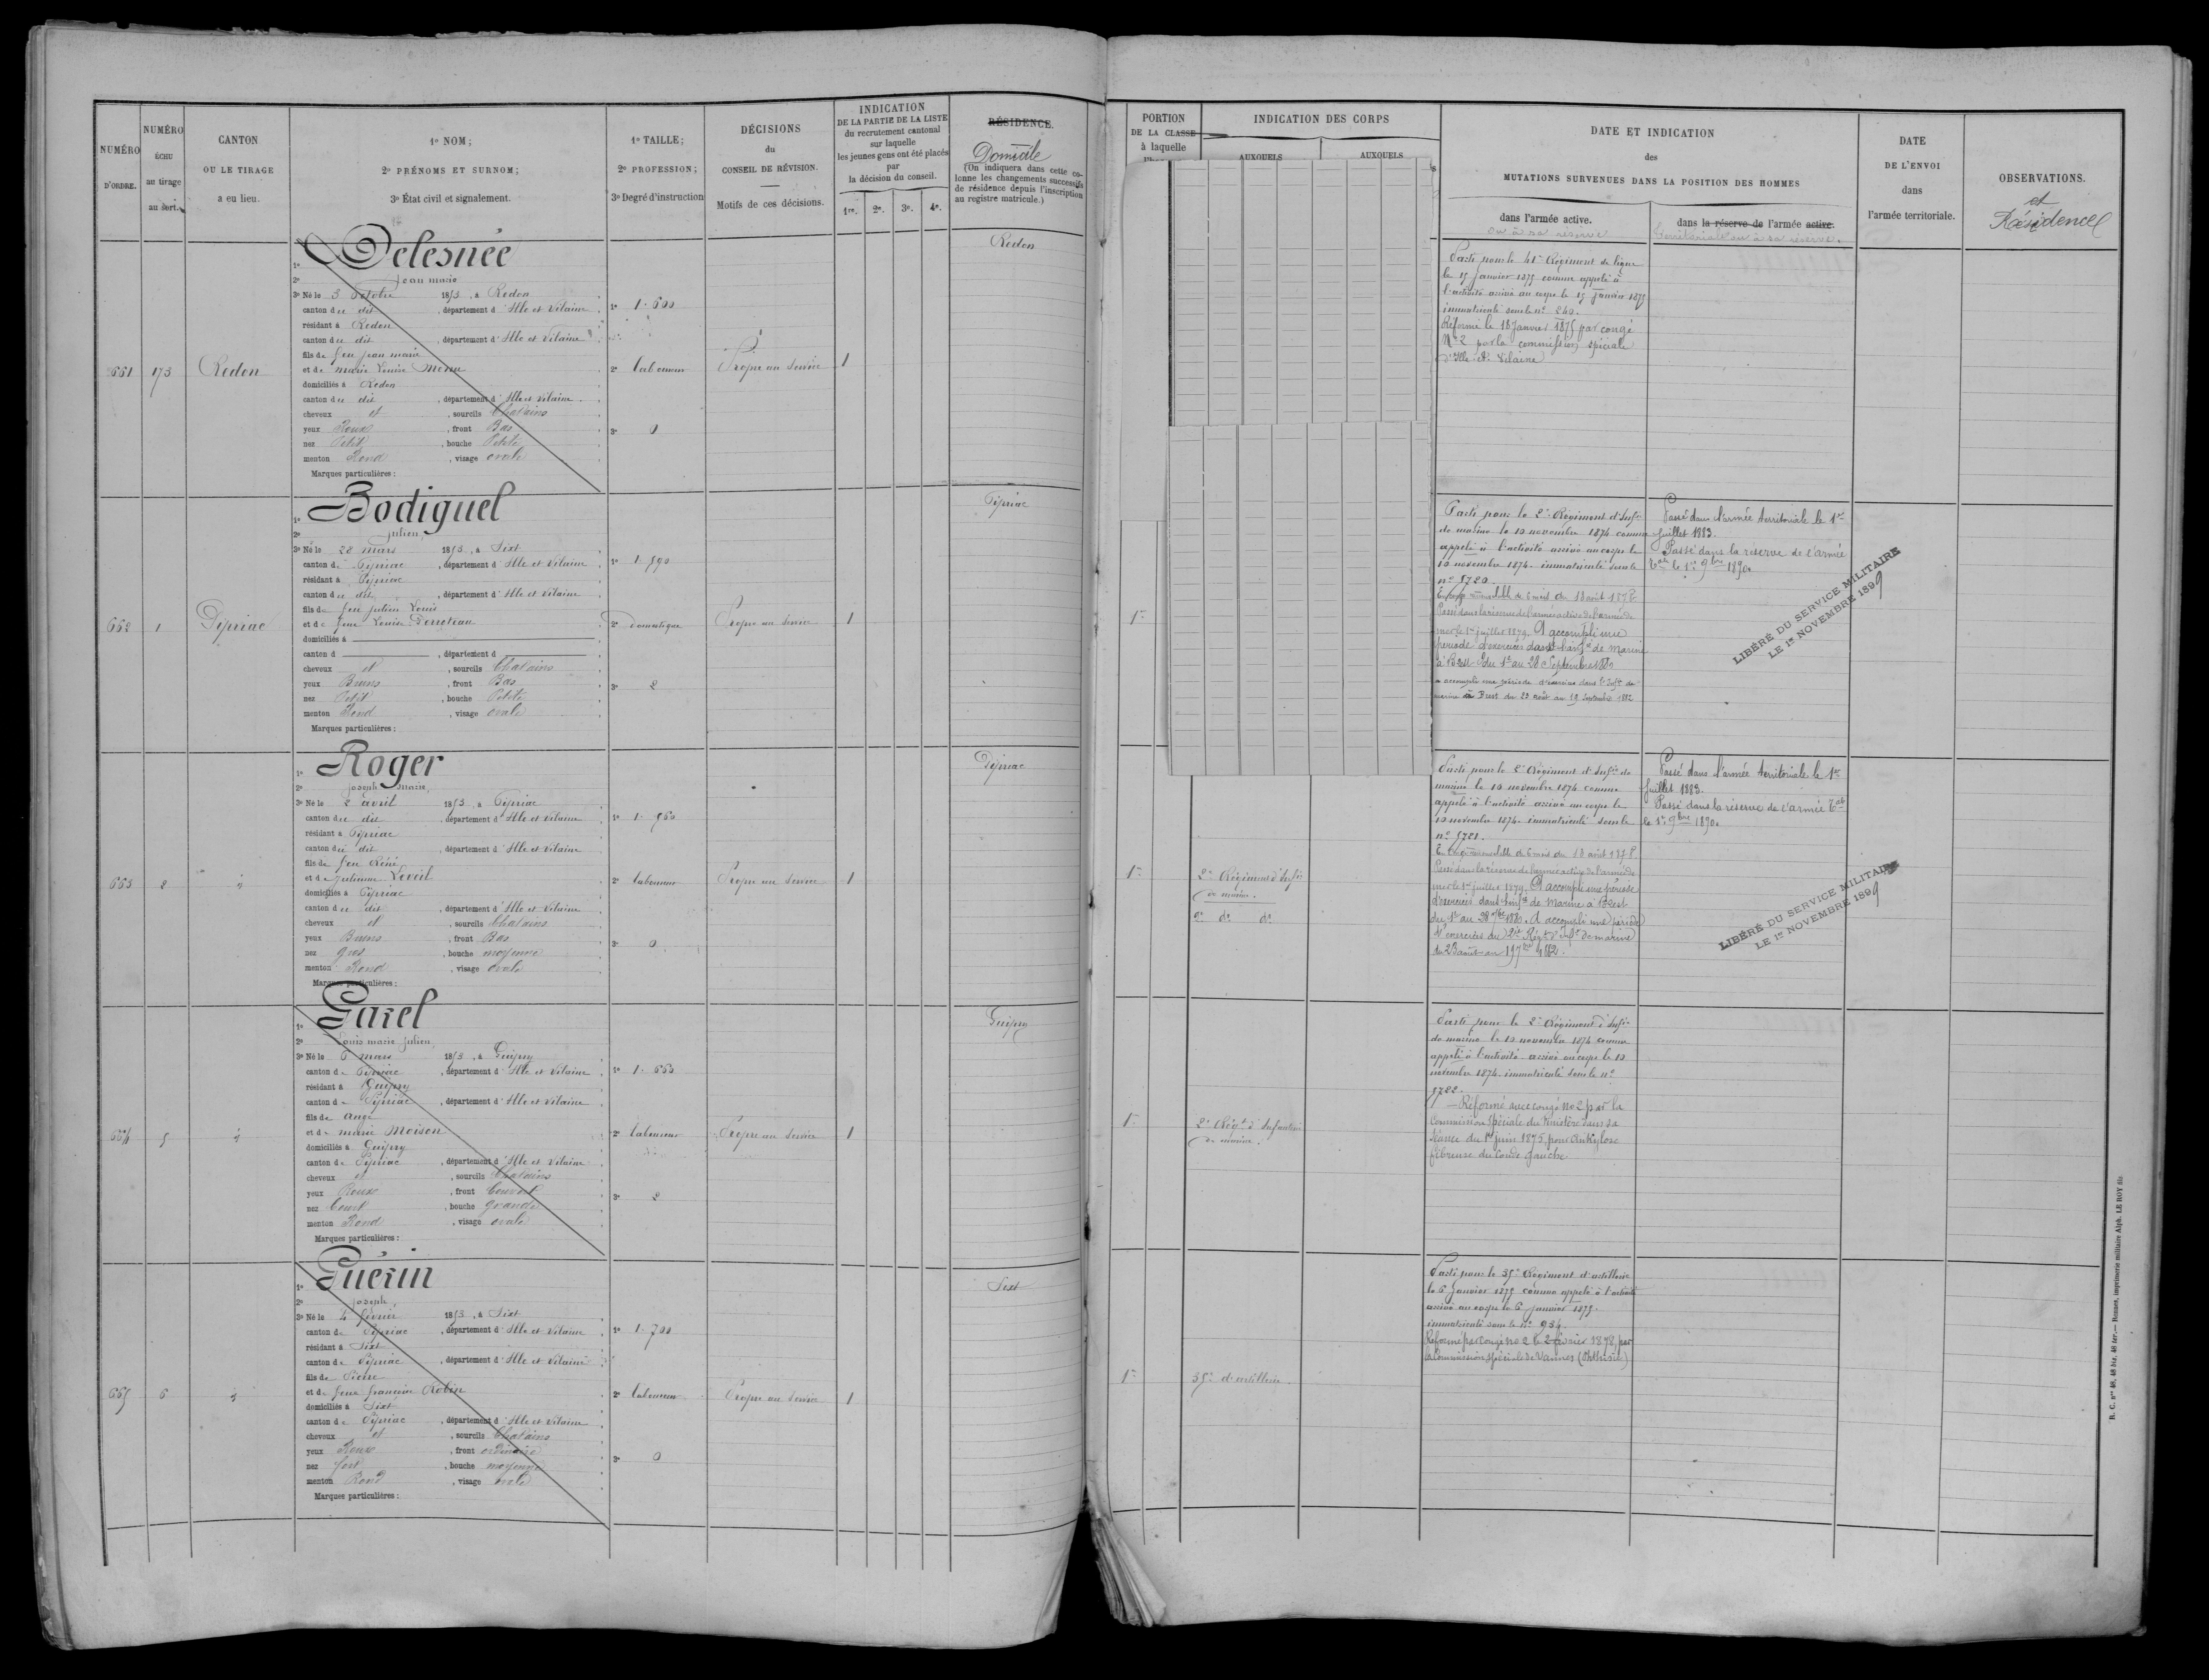 NUMÉRO
D'ORDRE.
NUMÉRO
ÉCHU
au tirage
au sort.
CANTON
OU LE TIRAGE
a eu lieu.
1º NOM;
2º PRÉNOMS ET SURNOM;
3º État civil et signalement.
1º TAILLE;
2º PROFESSION;
3º Degré d'instruction
DÉCISIONS
du
CONSEIL DE RÉVISION.
Motifs de ces décisions.
INDICATION
DE LA PARTIE DE LA LISTE
du recrutement cantonal
sur laquelle
les jeunes gens ont été placés
par
la décision du conseil.
1re. 2e. 3e. 4e.
RÉSIDENCE.
Domicile
(On indiquera dans cette co-
lonne les changements successifs
de résidence depuis l'inscription
au registre matricule.)
PORTION
DE LA CLASSE
à laquelle
INDICATION DES CORPS
AUXQUELS
AUXQUELS
DATE ET INDICATION
des
MUTATIONS SURVENUES DANS LA POSITION DES HOMMES
dans l'armée active.
ou à sa réserve
dans la réserve de l'armée active.
territoriale ou à sa réserve.
DATE
DE L'ENVOI
dans
l'armée territoriale.
OBSERVATIONS.
et
Résidence
661
173
Redon
1º Delesnée
2º Jean marie
3º Né le 3 octobre 1853, à Redon
canton du dit, département d'Ille et Vilaine
résidant à Redon
canton du dit, département d'Ille et Vilaine
fils de feu Jean marie
et de marie Louise Menu
domiciliés à Redon
canton du dit, département d'Ille et Vilaine
cheveux et, sourcils Chatains
yeux Roux, front Bas
nez Petit, bouche Petite
menton Rond, visage ovale
Marques particulières :
1º 1.600
2º laboureur
3º 0
Propre au service
1
Redon
Parti pour le 41e Régiment de ligne
le 15 Janvier 1875 comme appelé à
l'activité arrivé au corps le 15 Janvier 1875
immatriculé sous le nº 240.
Réformé le 18 Janvier 1875 par congé
Nº 2 par la commission spéciale
d'Ille-et-Vilaine
662
1
Pipriac
1º Bodiguel
2º Julien
3º Né le 28 mars 1853, à Sixt
canton de Pipriac, département d'Ille et Vilaine
résidant à Pipriac
canton du dit, département d'Ille et Vilaine
fils de feu Julien Louis
et de feue Louise Perreteau
domiciliés à
canton d , département d
cheveux et, sourcils Chatains
yeux Bruns, front Bas
nez Petit, bouche Petite
menton Rond, visage ovale
Marques particulières :
1º 1.590
2º domestique
3º 2
Propre au service
1
Pipriac
1re
Parti pour le 2e Régiment d'Infie
de marine le 10 novembre 1874 comme
appelé à l'activité arrivé au corps le
10 novembre 1874 immatriculé sous le
nº 5720.
En congé renouvelable de 6 mois du 18 août 1878
Passé dans la réserve de l'armée active de l'armée de
mer le 1er juillet 1879. A accompli une
période d'exercices dans l'infie de marine
à Brest du 1er au 28 Septembre 1880
a accompli une période d'exercices dans l'Infie de
marine à Brest du 23 août au 19 Septembre 1882
Passé dans l'armée territoriale le 1er
Juillet 1883.
Passé dans la réserve de l'armée
tale le 1er 9bre 1890.
LIBÉRÉ DU SERVICE MILITAIRE
LE 1er NOVEMBRE 1899
663
2
1º Roger
2º Joseph Marie
3º Né le 2 avril 1853, à Pipriac
canton du dit, département d'Ille et Vilaine
résidant à Pipriac
canton du dit, département d'Ille et Vilaine
fils de feu Réné
et de Julienne Leveil
domiciliés à Pipriac
canton du dit, département d'Ille et Vilaine
cheveux et, sourcils Chatains
yeux Bruns, front Bas
nez gros, bouche moyenne
menton Rond, visage ovale
Marques particulières :
1º 1.560
2º laboureur
3º 0
Propre au service
1
Pipriac
1re
2e Régiment d'Infie
de marine.
2e dº dº
Parti pour le 2e Régiment d'Infie de
marine le 10 novembre 1874 comme
appelé à l'activité arrivé au corps le
10 novembre 1874 immatriculé sous le
nº 5721.
En congé renouvelable de 6 mois du 18 août 1878
Passé dans la réserve de l'armée active de l'armée de
mer le 1er juillet 1879. A accompli une période
d'exercices dans l'infie de Marine à Brest
du 1er au 28 7bre 1880. A accompli une période
d'exercices au 2e Régt d'Infie de marine
du 23 août au 19 7bre 1882.
Passé dans l'armée territoriale le 1er
Juillet 1883.
Passé dans la réserve de l'armée tale
le 1er 9bre 1890.
LIBÉRÉ DU SERVICE MILITAIRE
LE 1er NOVEMBRE 1899
664
5
1º Garel
2º Louis marie Julien
3º Né le 6 mars 1853, à Guipry
canton de Pipriac, département d'Ille et Vilaine
résidant à Guipry
canton de Pipriac, département d'Ille et Vilaine
fils de Ange
et de marie Moison
domiciliés à Guipry
canton de Pipriac, département d'Ille et Vilaine
cheveux et, sourcils Chatains
yeux Roux, front Couvert
nez Court, bouche grande
menton Rond, visage ovale
Marques particulières :
1º 1.660
2º laboureur
3º 2
Propre au service
1
Guipry
1re
2e Régt d'Infanterie
de marine.
Parti pour le 2e Régiment d'Infie
de marine le 10 novembre 1874 comme
appelé à l'activité arrivé au corps le 10
novembre 1874 immatriculé sous le nº
5722.
— Réformé avec congé nº 2 par la
Commission spéciale du Finistère dans sa
séance du 1er juin 1875, pour ankylose
fibreuse du coude gauche
665
6
1º Guérin
2º Joseph
3º Né le 4 février 1853, à Sixt
canton de Pipriac, département d'Ille et Vilaine
résidant à Sixt
canton de Pipriac, département d'Ille et Vilaine
fils de Pierre
et de feue françoise Robin
domiciliés à Sixt
canton de Pipriac, département d'Ille et Vilaine
cheveux et, sourcils Chatains
yeux Roux, front ordinaire
nez fort, bouche moyenne
menton Rond, visage ovale
Marques particulières :
1º 1.700
2º laboureur
3º 0
Propre au service
1
Sixt
1re
35e d'artillerie
Parti pour le 35e Régiment d'artillerie
le 6 Janvier 1875 comme appelé à l'activité
arrivé au corps le 6 Janvier 1875.
immatriculé sous le nº 934.
Réformé par congé nº 2 le 2 février 1878 par
la Commission spéciale de Vannes (Phthisie)
R. C. nos 46, 46 bis, 46 ter.— Rennes, imprimerie militaire Alph. LE ROY fils